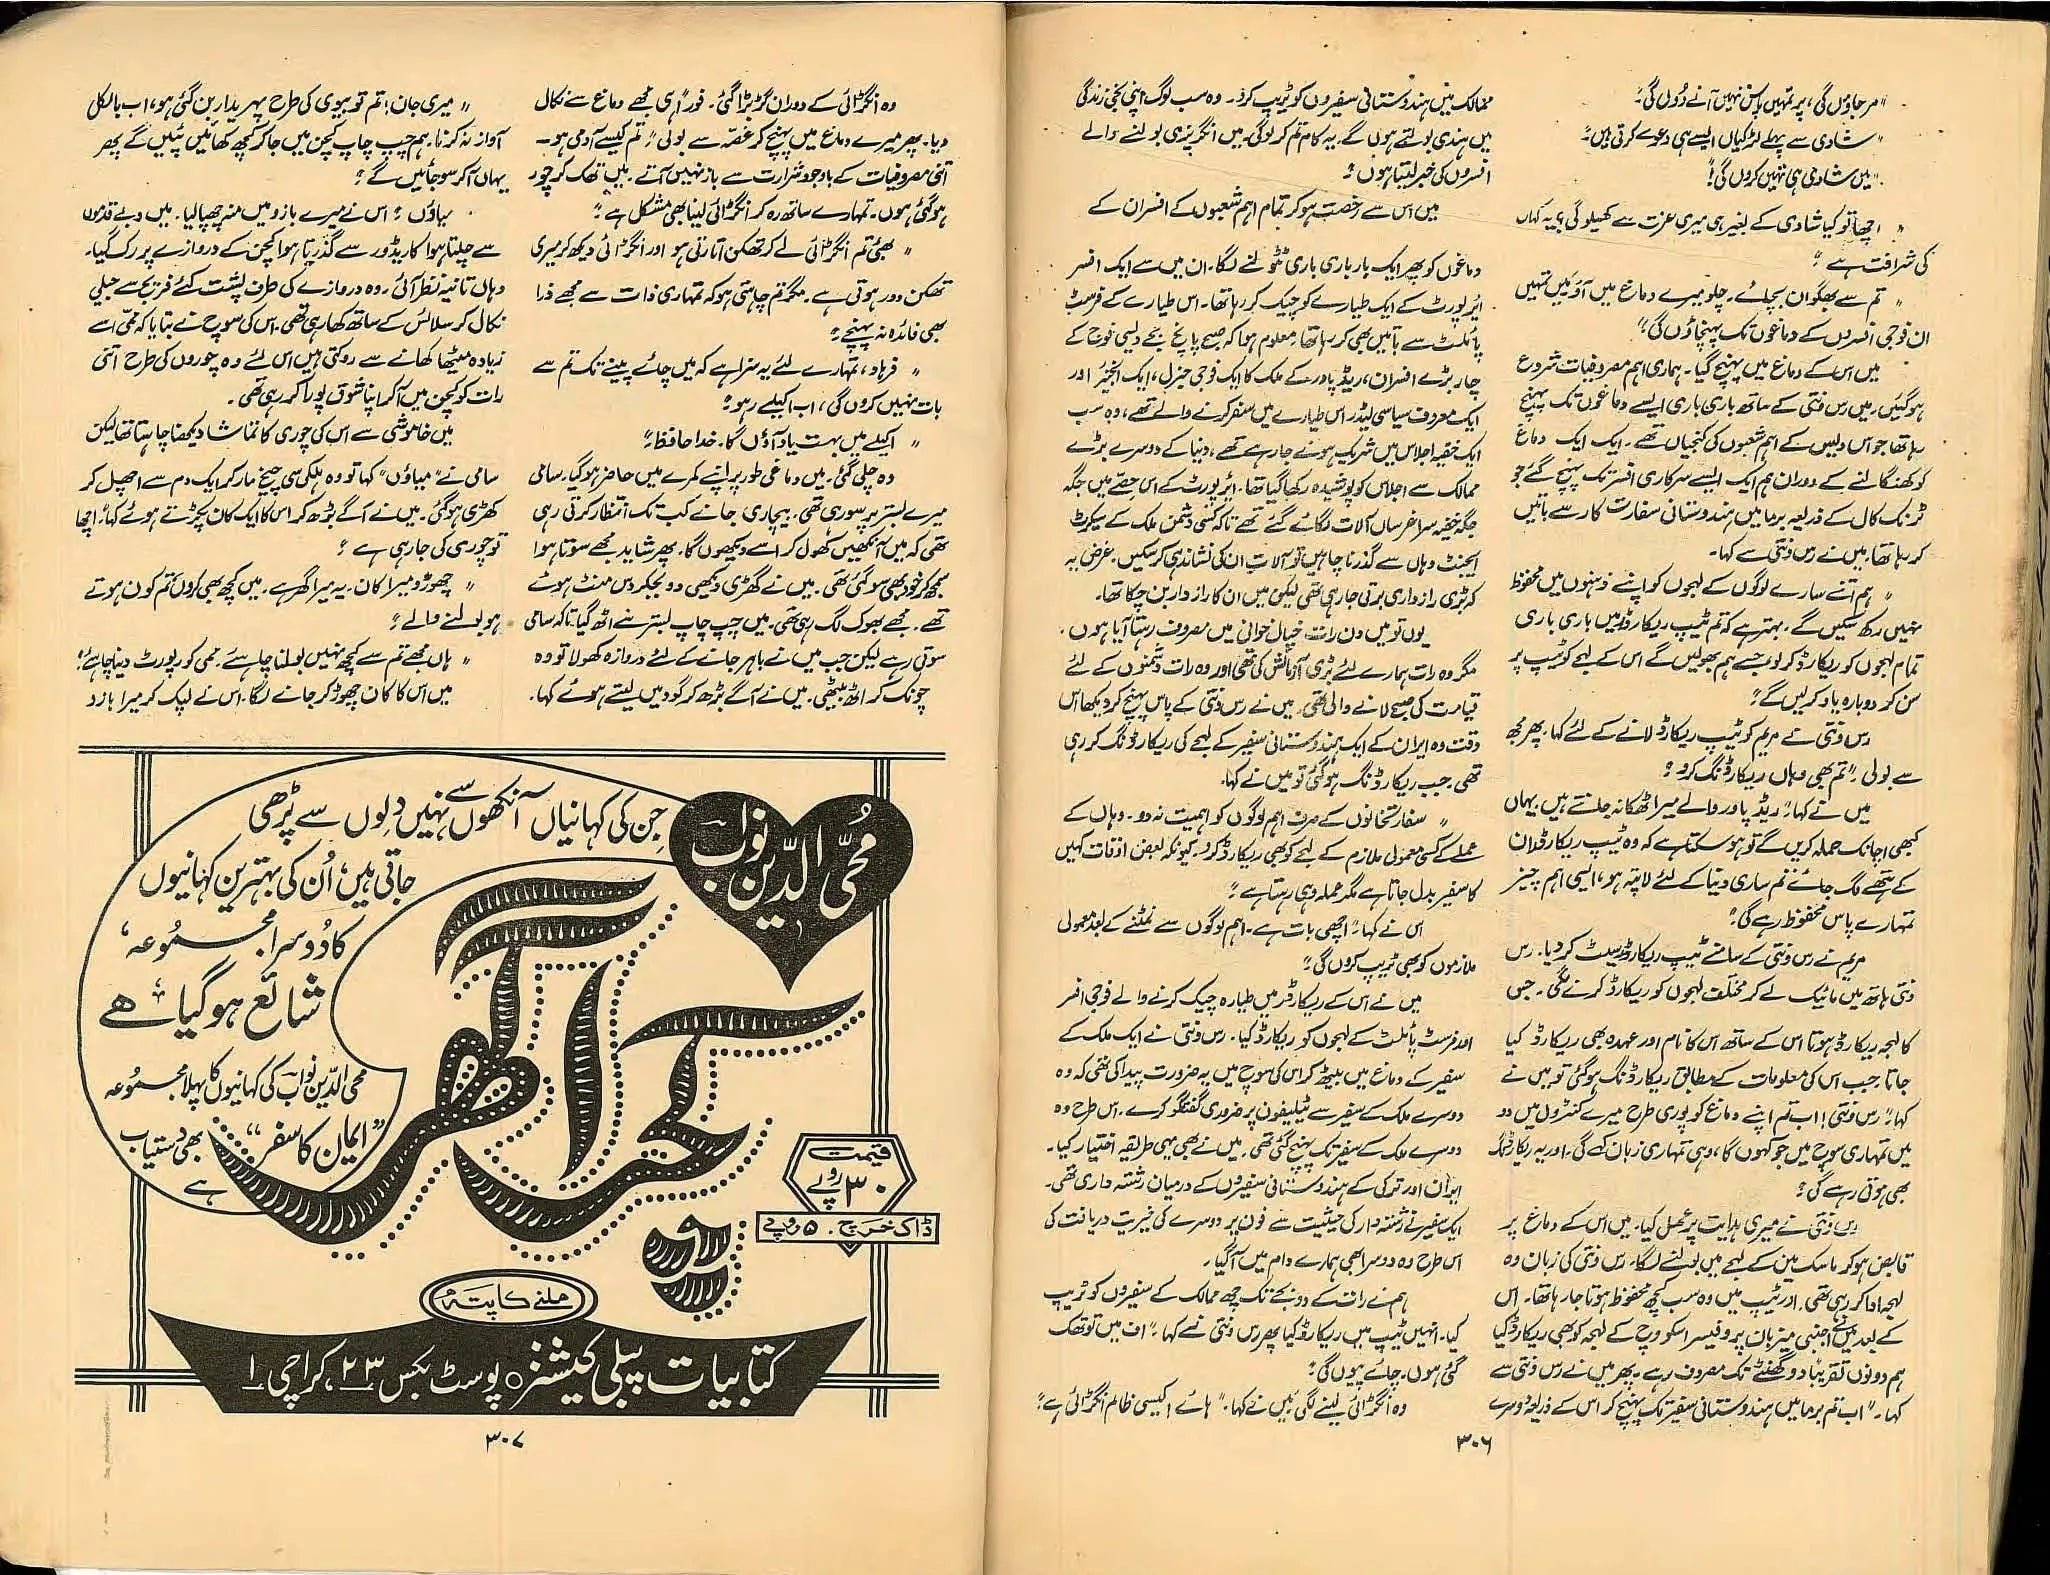 "مر جاؤں گی، پر تمہیں پاس نہیں آنے دوں گی۔"
"شادی سے پہلے لڑکیاں ایسے ہی دعوے کرتی ہیں۔"
"میں شادی ہی نہیں کروں گی!"
"اچھا تو کیا شادی کے بغیر ہی میری عزت سے کھیلو گی؟ یہ کہاں
کی شرافت ہے؟"
"تم سے بھگوان بچائے۔ چلو میرے دماغ میں آؤ میں تمہیں
ان فوجی افسروں کے دماغوں تک پہنچاؤں گی۔"
میں اس کے دماغ میں پہنچ گیا۔ ہماری اہم مصروفیات شروع
ہو گئیں۔ میں رس ونتی کے ساتھ باری باری ایسے دماغوں تک پہنچ
رہا تھا جو اس دیس کے اہم شعبوں کی کنجیاں تھے۔ ایک ایک دماغ
کو کھنگالنے کے دوران ہم ایک ایسے سرکاری افسر تک پہنچ گئے جو
ٹرنک کال کے ذریعہ برما میں ہندوستانی سفارت کار سے باتیں
کر رہا تھا۔ میں نے رس ونتی سے کہا۔
"ہم اتنے سارے لوگوں کے لہجوں کو اپنے ذہنوں میں محفوظ
نہیں رکھ سکیں گے۔ بہتر ہے کہ تم ٹیپ ریکارڈ میں باری باری
تمام لہجوں کو ریکارڈ کر لو جسے ہم بھولیں گے اس کے لہجے کو ٹیپ پر
سن کر دوبارہ یاد کر لیں گے۔"
رس ونتی نے مریم کو ٹیپ ریکارڈ لانے کے لئے کہا۔ پھر مجھ
سے بولی۔ "تم بھی وہاں ریکارڈنگ کرو؟"
میں نے کہا۔ "ریڈ پاور والے میرا ٹھکانہ جانتے ہیں۔ یہاں
کبھی اچانک حملہ کریں گے تو ہو سکتا ہے کہ وہ ٹیپ ریکارڈ ان
کے ہتھے لگ جائے تم ساری دنیا کے لئے لاپتہ ہو، ایسی اہم چیز
تمہارے پاس محفوظ رہے گی۔"
مریم نے رس ونتی کے سامنے ٹیپ ریکارڈ سیٹ کر دیا۔ رس
ونتی ہاتھ میں مائیک لے کر مختلف لہجوں کو ریکارڈ کرنے لگی۔ جس
کا لہجہ ریکارڈ ہوتا اس کے ساتھ اس کا نام اور عہدہ بھی ریکارڈ کیا
جاتا۔ جب اس کی معلومات کے مطابق ریکارڈنگ ہو گئی تو میں نے
کہا۔ "رس ونتی! اب تم اپنے دماغ کو پوری طرح میرے کنٹرول میں دو
میں تمہاری سوچ میں جو کہوں گا، وہی تمہاری زبان کہے گی۔ اور یہ ریکارڈنگ
بھی ہوتی رہے گی۔"
رس ونتی نے میری ہدایت پر عمل کیا۔ میں اس کے دماغ پر
قابض ہو کر ماسک مین کے لہجے میں بولنے لگا۔ رس ونتی کی زبان وہ
لہجہ ادا کر رہی تھی۔ اور ٹیپ میں وہ سب کچھ محفوظ ہوتا جا رہا تھا۔ اس
کے بعد میں نے اجنبی میزبان پروفیسر اسکو وچ کے لہجہ کو بھی ریکارڈ کیا
ہم دونوں تقریباً دو گھنٹے تک مصروف رہے۔ پھر میں نے رس ونتی سے
کہا۔ "اب تم برما میں ہندوستانی سفیر تک پہنچ کر اس کے ذریعہ دوسرے
ممالک میں ہندوستانی سفیروں کو ٹریپ کرو۔ وہ سب لوگ اپنی نجی زندگی
میں ہندی بولتے ہوں گے۔ یہ کام تم کر لوگی۔ میں انگریزی بولنے والے
افسروں کی خبر لیتا ہوں۔"
میں اس سے رخصت ہو کر تمام اہم شعبوں کے افسران کے
دماغوں کو پھر ایک بار باری باری ٹٹولنے لگا۔ ان میں سے ایک افسر
ائیر پورٹ کے ایک طیارے کو چیک کر رہا تھا۔ اس طیارے کے فرسٹ
پائلٹ سے باتیں بھی کر رہا تھا۔ معلوم ہوا کہ صبح پانچ بجے دیسی فوج کے
چار بڑے افسران، ریڈ پاور کے ملک کا ایک فوجی جنرل، ایک انجینئر اور
ایک معروف سیاسی لیڈر اس طیارے میں سفر کرنے والے تھے، وہ سب
ایک خفیہ اجلاس میں شریک ہونے جا رہے تھے، دنیا کے دوسرے بڑے
ممالک سے اجلاس کو پوشیدہ رکھا گیا تھا۔ ائر پورٹ کے اس حصے میں جگہ
جگہ خفیہ سراغرساں آلات لگائے گئے تھے تاکہ کسی دشمن ملک کے سیکرٹ
ایجنٹ وہاں سے گذرنا چاہیں تو آلات ان کی نشاندہی کر سکیں۔ غرض یہ
کہ بڑی رازداری برتی جا رہی تھی لیکن میں ان کا رازدار بن چکا تھا۔
یوں تو میں دن رات خیال خوانی میں مصروف رہتا آیا ہوں۔
مگر وہ رات ہمارے لئے بڑی آزمائش کی تھی اور وہ رات دشمنوں کے لئے
قیامت کی صبح لانے والی تھی۔ میں نے رس ونتی کے پاس پہنچ کر دیکھا اس
وقت وہ ایران کے ایک ہندوستانی سفیر کے لہجے کی ریکارڈنگ کر رہی
تھی۔ جب ریکارڈنگ ہو گئی تو میں نے کہا۔
"سفارتخانوں کے صرف اہم لوگوں کو اہمیت نہ دو۔ وہاں کے
عملے کے کسی معمولی ملازم کے لہجے کو بھی ریکارڈ کرو۔ کیونکہ بعض اوقات کہیں
کا سفیر بدل جاتا ہے مگر عملہ وہی رہتا ہے۔"
اس نے کہا۔ "اچھی بات ہے۔ اہم لوگوں سے نمٹنے کے بعد معمولی
ملازموں کو بھی ٹریپ کروں گی۔"
میں نے اس کے ریکارڈر میں طیارہ چیک کرنے والے فوجی افسر
اور فرسٹ پائلٹ کے لہجوں کو ریکارڈ کیا۔ رس ونتی نے ایک ملک کے
سفیر کے دماغ میں بیٹھ کر اس کی سوچ میں یہ ضرورت پیدا کی تھی کہ وہ
دوسرے ملک کے سفیر سے ٹیلیفون پر ضروری گفتگو کرے۔ اس طرح وہ
دوسرے ملک کے سفیر تک پہنچ گئی تھی۔ میں نے بھی یہی طریقہ اختیار کیا۔
ایران اور ترکی کے ہندوستانی سفیروں کے درمیان رشتہ داری تھی۔
ایک سفیر نے رشتہ دار کی حیثیت سے فون پر دوسرے کی خیریت دریافت کی
اس طرح وہ دوسرا بھی ہمارے دام میں آ گیا۔
ہم نے رات کے دو بجے تک چھ ممالک کے سفیروں کو ٹریپ
کیا۔ انہیں ٹیپ میں ریکارڈ کیا پھر رس ونتی نے کہا۔ "اف میں تو تھک
گئی ہوں۔ چائے پیوں گی۔"
وہ انگڑائی لینے لگی میں نے کہا۔ "ہائے! کیسی ظالم انگڑائی ہے!"
۳۰۶
وہ انگڑائی کے دوران گڑبڑا گئی۔ فوراً ہی مجھے دماغ سے نکال
دیا۔ پھر میرے دماغ میں پہنچ کر غصہ سے بولی۔ "تم کیسے آدمی ہو۔
اتنی مصروفیات کے باوجود شرارت سے باز نہیں آتے۔ میں تھک کر چور
ہو گئی ہوں۔ تمہارے ساتھ رہ کر انگڑائی لینا بھی مشکل ہے۔"
"بھئی تم انگڑائی لے کر تھکن اتارتی ہو اور انگڑائی دیکھ کر میری
تھکن دور ہوتی ہے۔ مگر تم چاہتی ہو کہ تمہاری ذات سے مجھے ذرا
بھی فائدہ نہ پہنچے۔"
"فرہاد، تمہارے لئے یہ سزا ہے کہ میں چائے پینے تک تم سے
بات نہیں کروں گی، اب اکیلے رہو۔"
"اکیلے میں بہت یاد آؤں گا۔ خدا حافظ۔"
وہ چلی گئی۔ میں دماغی طور پر اپنے کمرے میں حاضر ہو گیا۔ سامی
میرے بستر پر سو رہی تھی۔ بیچاری جانے کب تک انتظار کرتی رہی
تھی کہ میں آنکھیں کھول کر اسے دیکھوں گا۔ پھر شاید مجھے سوتا ہوا
سمجھ کر خود بھی سو گئی تھی۔ میں نے گھڑی دیکھی دو بجکر دس منٹ ہوئے
تھے۔ مجھے بھوک لگ رہی تھی۔ میں چپ چاپ بستر سے اٹھ گیا۔ تاکہ سامی
سوتی رہے لیکن جب میں نے باہر جانے کے لئے دروازہ کھولا تو وہ
چونک کر اٹھ بیٹھی۔ میں نے آگے بڑھ کر گود میں لیتے ہوئے کہا۔
"میری جان! تم تو بیوی کی طرح پہریدار بن گئی ہو، اب بالکل
آواز نہ کرنا۔ ہم چپ چاپ کچن میں جا کر کچھ کھائیں پئیں گے پھر
یہاں آ کر سو جائیں گے۔"
میاؤں۔" اس نے میرے بازو میں منہ چھپا لیا۔ میں دبے قدموں
سے چلتا ہوا کاریڈور سے گذرتا ہوا کچن کے دروازے پر رک گیا۔
وہاں تانیہ نظر آئی۔ وہ دروازے کی طرف پشت کئے فریج سے جیلی
نکال کر سلائس کے ساتھ کھا رہی تھی۔ اس کی سوچ نے بتایا کہ ممی اسے
زیادہ میٹھا کھانے سے روکتی ہیں اس لئے وہ چوروں کی طرح اتنی
رات کو کچن میں آ کر اپنا شوق پورا کر رہی تھی۔
میں خاموشی سے اس کی چوری کا تماشا دیکھنا چاہتا تھا لیکن
سامی نے "میاؤں" کہا تو وہ ہلکی سی چیخ مار کر ایک دم سے اچھل کر
کھڑی ہو گئی۔ میں نے آگے بڑھ کر اس کا ایک کان پکڑتے ہوئے کہا۔ "اچھا
تو چوری کی جا رہی ہے۔"
"چھوڑو میرا کان۔ یہ میرا گھر ہے۔ میں کچھ بھی کروں تم کون ہوتے
ہو بولنے والے۔"
"ہاں مجھے تم سے کچھ نہیں بولنا چاہئے۔ ممی کو رپورٹ دینا چاہئے!
میں اس کا کان چھوڑ کر جانے لگا۔ اس نے لپک کر میرا بازو
محی الدین نواب
جن کی کہانیاں آنکھوں سے نہیں دلوں سے پڑھی
جاتی ہیں، اُن کی بہترین کہانیوں
کا دوسرا مجموعہ،
شائع ہو گیا ہے
کچرا گھر
محی الدین نواب کی کہانیوں کا پہلا مجموعہ
"ایمان کا سفر" بھی دستیاب
ہے
قیمت
۳۰ روپے
ڈاک خرچ۔ ۵ روپے
ملنے کا پتہ
کتابیات پبلی کیشنز ○ پوسٹ بکس ۲۳، کراچی ۱
۳۰۷